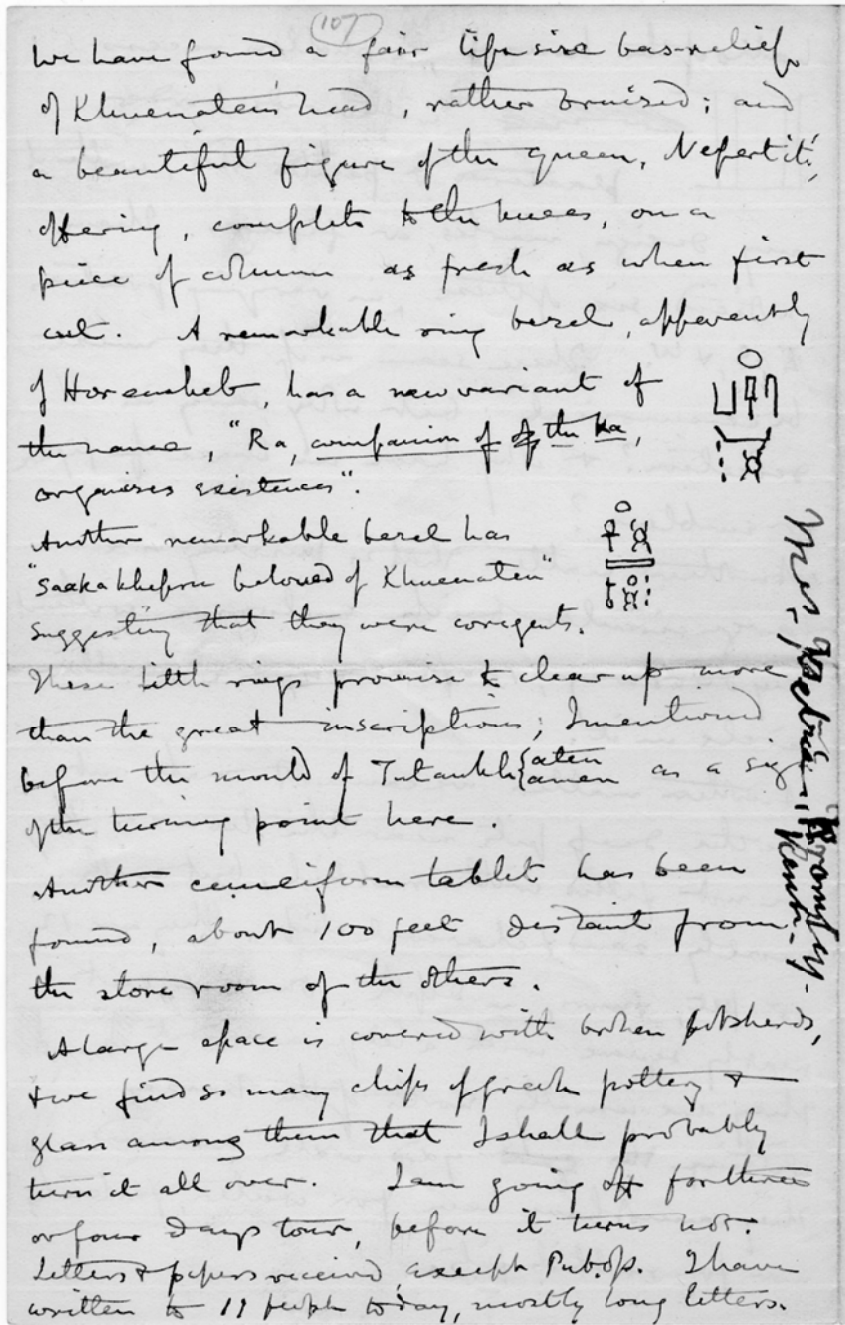 (107)
We have found a fair life size bas-relief
of Khuenaten's head, rather bruised; and
a beautiful figure of the queen, Nefertiti,
offering, complete to the knees, on a
piece of column as fresh as when first
cut. A remarkable ring bezel, apparently
of Horemheb, has a new variant of
the name, "Ra, companion of of the ka,
organises existences".
Another remarkable bezel has
"Saakakhepru beloved of Khuenaten"
suggesting that they were coregents.
These little rings promise to clear up more
than the great inscriptions; I mentioned
before the mould of Tutankh{aten
{amen as a sign
of the turning point here.
Another cuneiform tablet has been
found, about 100 feet distant from
the store room of the others.
A large space is covered with broken potsherds,
& we find so many chips of Greek pottery &
glass among them that I shall probably
turn it all over. I am going off for three
or four days tour, before it turns hot.
Letters & papers received except Pub. Op. I have
written to 11 people today, mostly long letters.
Mrs Petrie, Bromley
Kent.